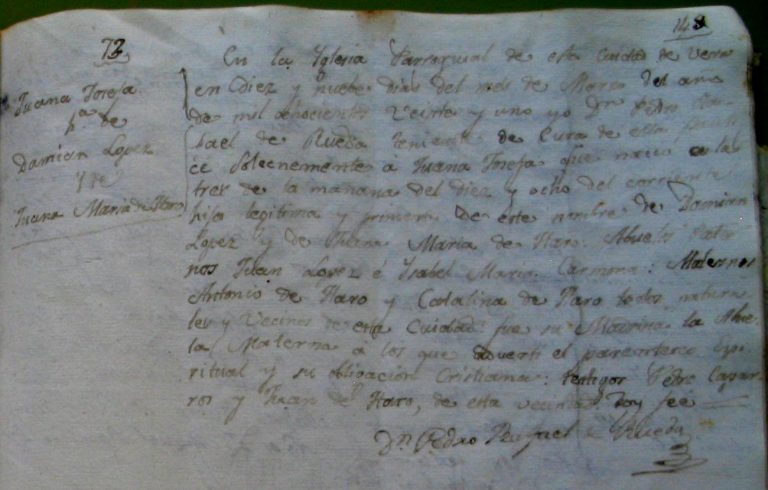 148
72
Juana Josefa
h.ª de
Damian Lopez
y de
Juana Maria de Haro
En la Yglesia Parroquial de esta Cuidad de Vera
en diez y nuebe dias del mes de Marzo del año
de mil ochocientos Veinte y uno yo Dn Pedro Ra-
fael de Rueda teniente de Cura de esta
cé solecnemente á Juana Josefa que nacio a las
tres de la mañana del diez y ocho del corriente
hija legitima y primera de este nombre de Damian
Lopez y de Juana Maria de Haro. Abuelos Pater
nos Juan Lopez é Ysabel Maria Carmona: Maternos
Antonio de Haro y Catalina de Haro todos natura
les y Vecinos de esta Cuidad: fue su Madrina la Abue-
la Materna á los que advertí el parentesco Espi
ritual y su obligacion Cristiana: testigos Pedro Capar
ros y Juan de Haro, de esta vecindad doy fee
Dn Pedro Rafael de Rueda